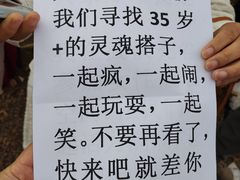 我们寻找 35 岁
+的灵魂搭子,
一起疯,一起闹,
一起玩耍,一起
笑。不要再看了,
快来吧就差你